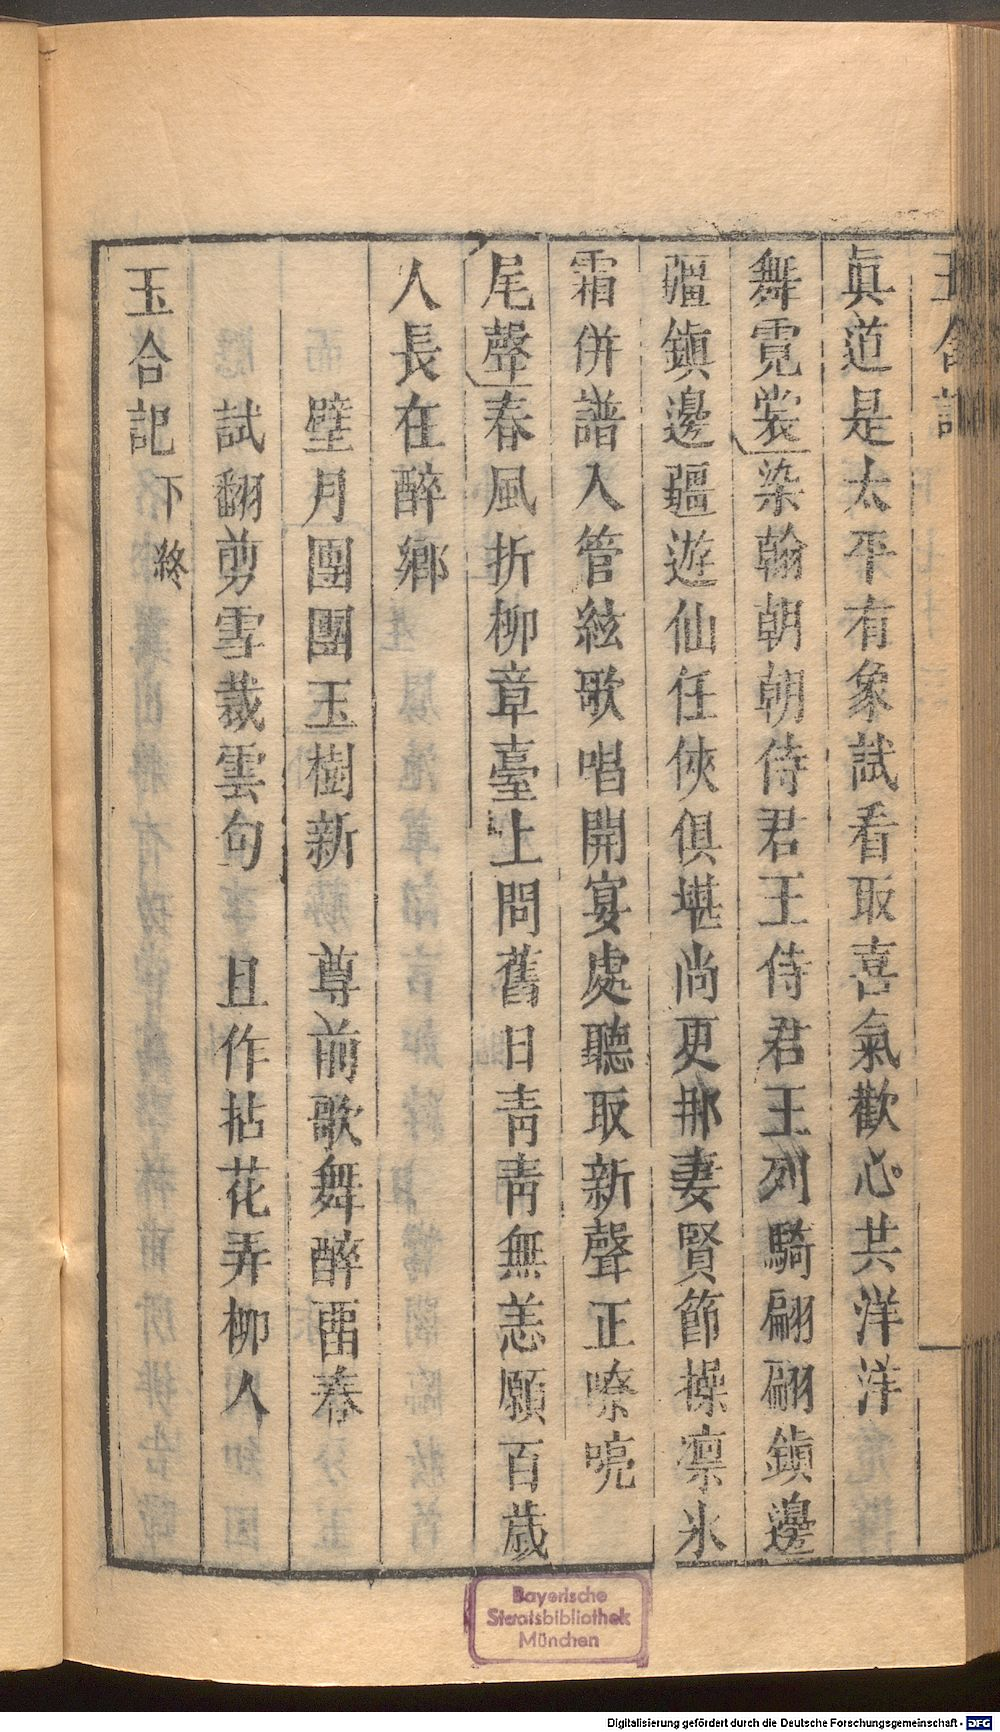 玉合記
眞道是太平有象試看取喜氣歡心共洋洋
舞霓裳染翰朝朝侍君王侍君王列騎翩翩鎮邊
疆鎮邊疆遊仙任俠俱堪尚更那妻賢節操凛氷
霜併譜入管絃歌唱開宴處聽取新聲正嘹喨
尾聲春風折柳章臺上問舊日青青無恙願百歲
人長在醉鄉
璧月團團玉樹新　尊前歌舞醉畱春
試翻剪雪裁雲句　且作拈花弄柳人
玉合記下終
Bayerische
Staatsbibliothek
München
Digitalisierung gefördert durch die Deutsche Forschungsgemeinschaft - DFG